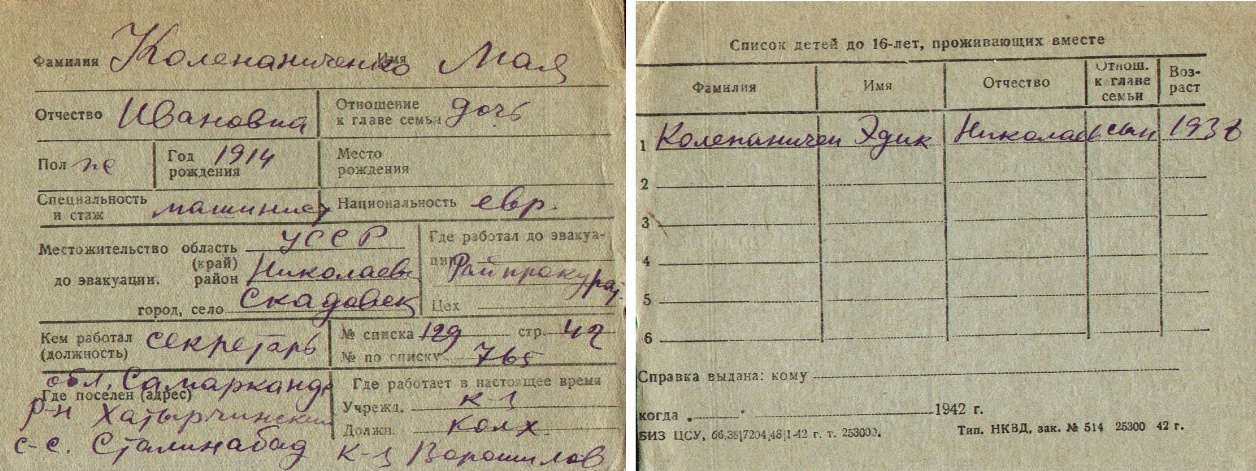 Фамилия Колепаниченко Имя Мая
Отчество Ивановна Отношение к главе семьи дочь
Пол же Год рождения 1914 Место рождения
Специальность и стаж машинист Национальность евр.
Местожительство до эвакуации. область (край) УССР
район Николаевь
город, село Скадовск
Где работал до эвакуации Райпрокурат.
Цех
Кем работал (должность) секретарь
№ списка 129 стр. 42
№ по списку 765
Где поселен (адрес) обл. Самарканд
р-н Хатырчинский
с-с. Сталинабад к-з Ворошилов
Где работает в настоящее время
Учрежд. к-з
Должн. колх.
Список детей до 16-лет, проживающих вместе
Фамилия Имя Отчество Отнош. к главе семьи Возраст
1 Колепаничен Эдик Николаев сын 1938
2
3
4
5
6
Справка выдана: кому
когда 1942 г.
БИЗ ЦСУ, 66,38|7204,48|1-42 г. т. 253000. Тип. НКВД, зак. № 514 25300 42 г.